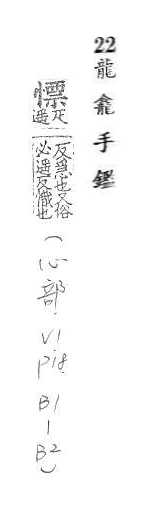 22龍龕手鑑
慓疋遥
反急也又俗
必遥反幟也
(心部 V1 P18 B1-B2)